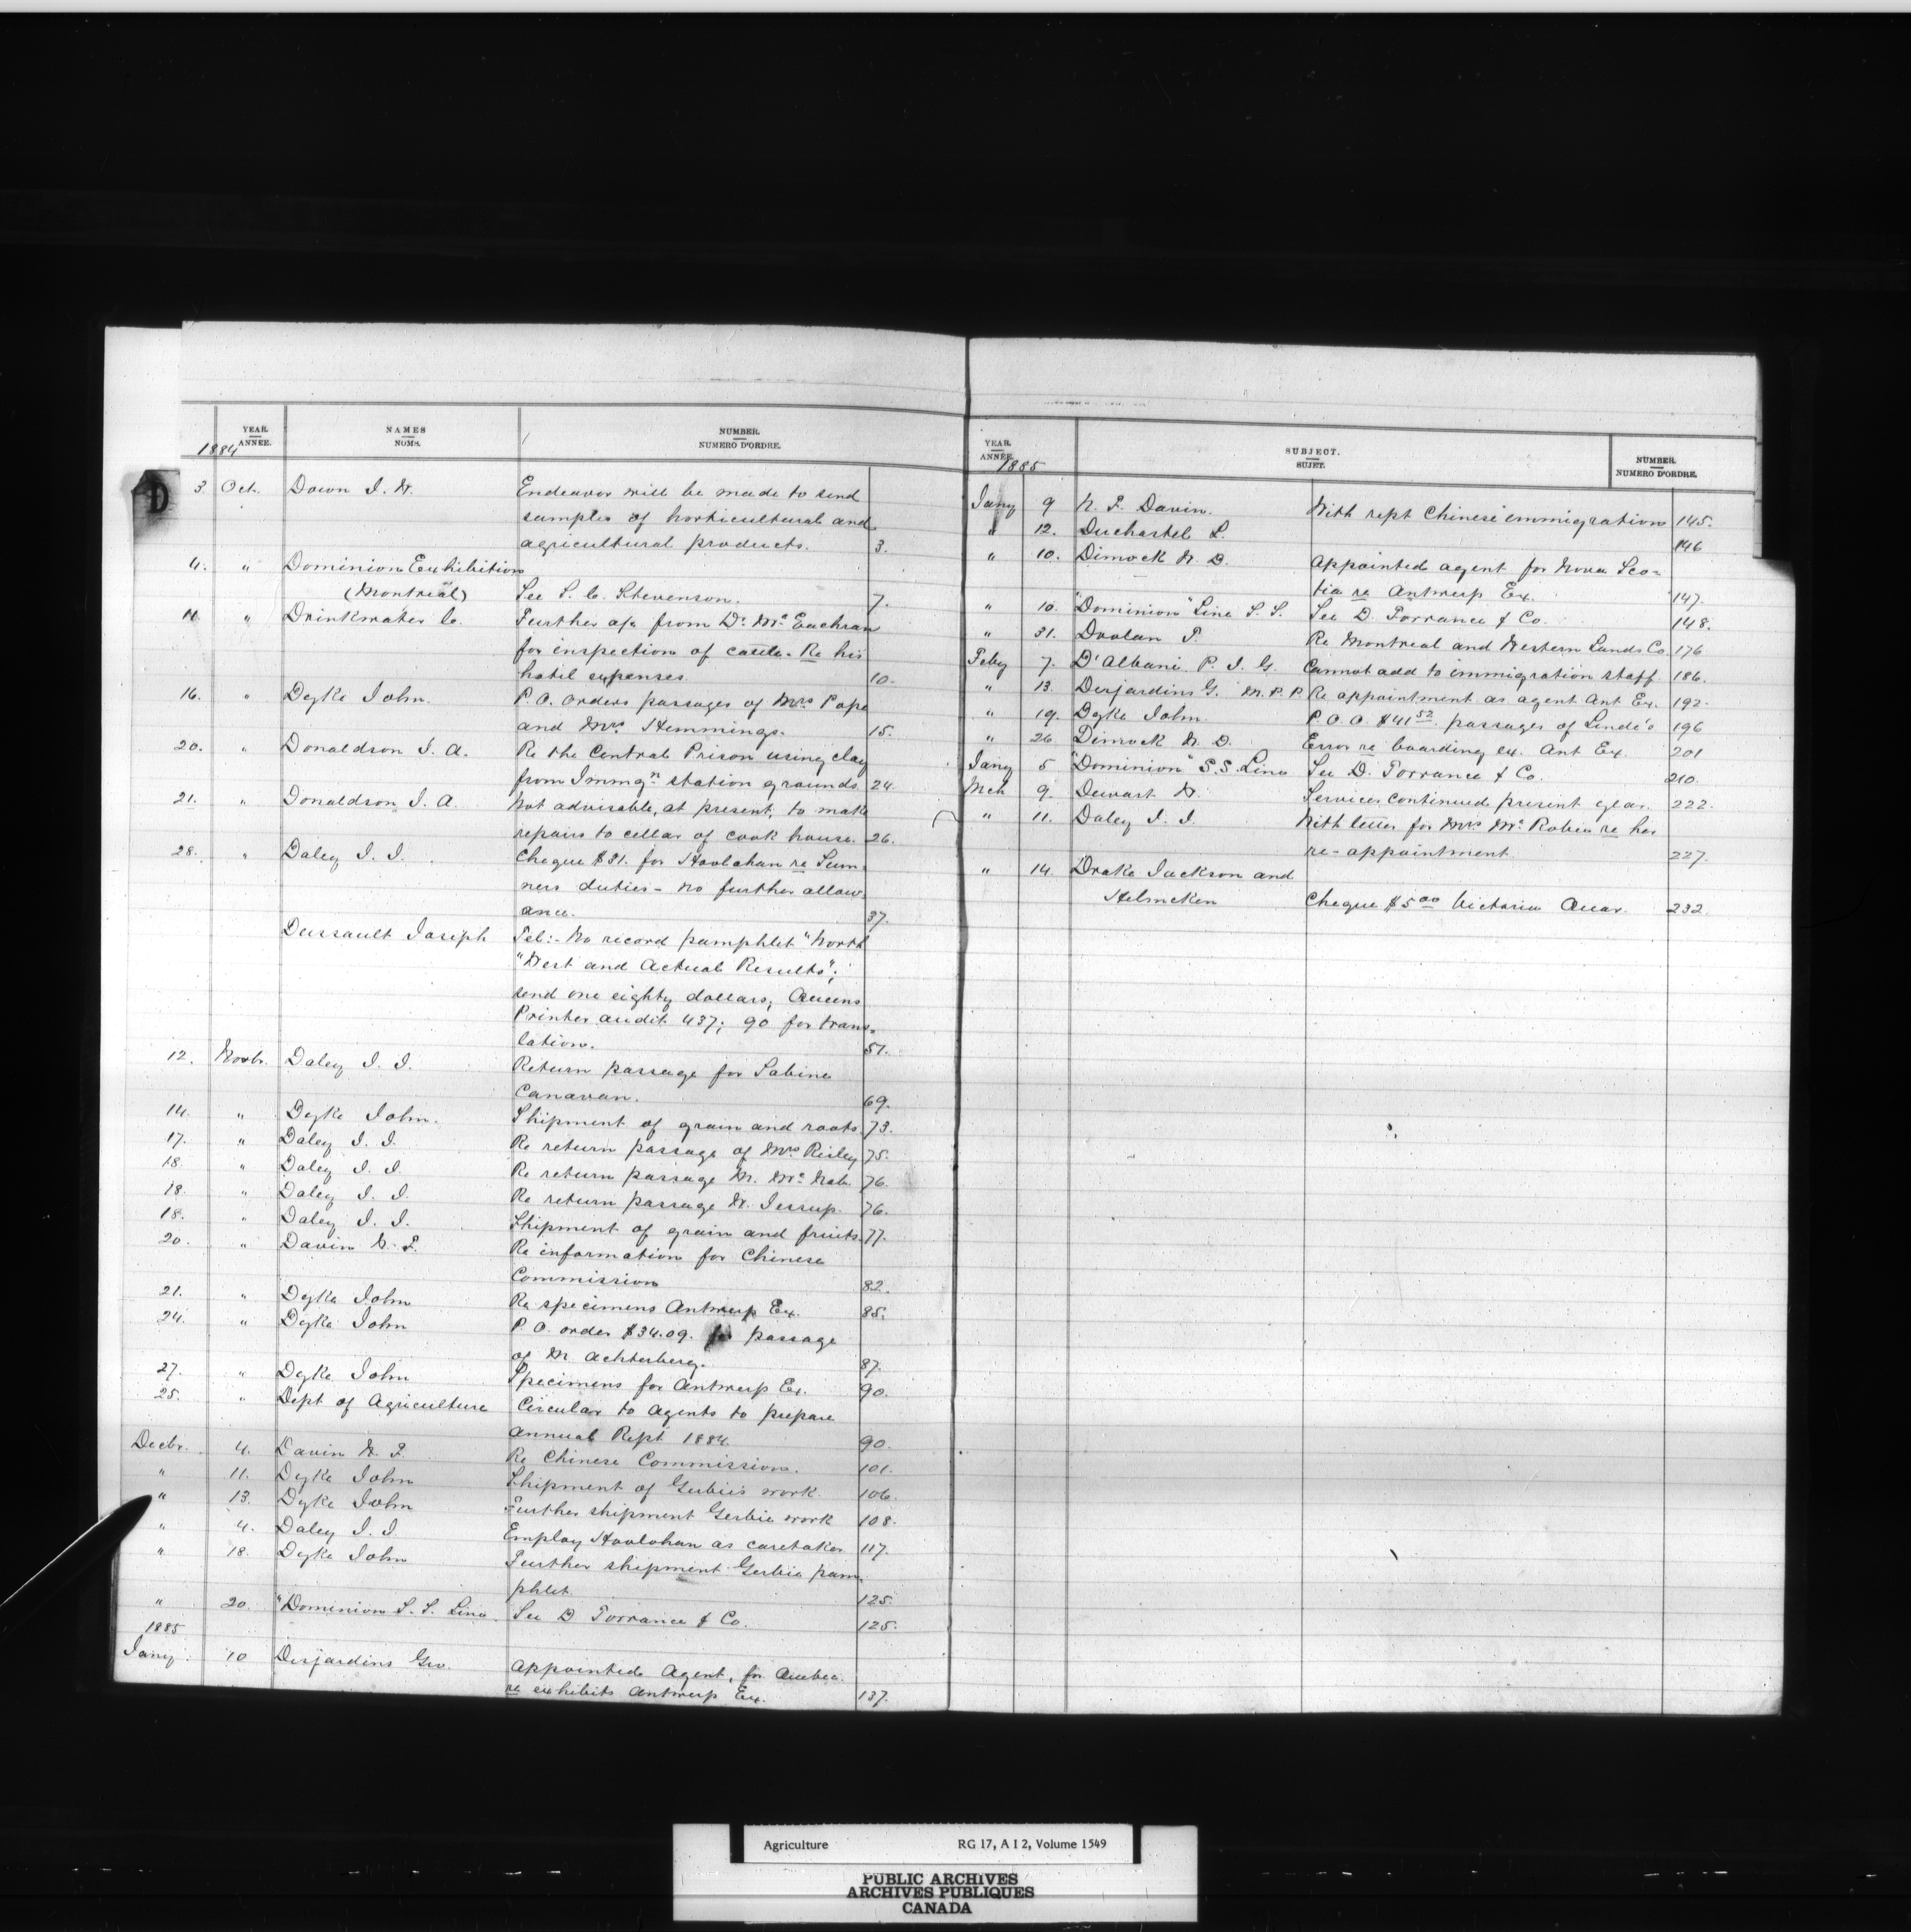 YEAR. ANNÉE. NAMES NOMS. NUMBER. NUMERO D'ORDRE.
1884
D
3 Oct. Down J. W. Endeavor will be made to send
samples of horticultural and
agricultural products. 3.
4. " Dominion Exhibition
(Montreal) See S. C. Stevenson. 7.
11. " Drinkwater C. Further a/c from Dr. McEachran
for inspection of cattle. Re his
hotel expenses 10.
16. " Dyke John. P. O. orders passages of Mrs Pope
and Mrs. Hemmings. 15.
20. " Donaldson J. A. Re the Central Prison using clay
from Immgn station grounds. 24.
21. " Donaldson J. A. Not advisable, at present, to make
repairs to cellar of cook house. 26.
28. " Daley J. J. Cheque $31. for Hoolahan re Sum-
ners duties - no further allow-
ance. 37.
Dussault Joseph Tel:- No record pamphlet "North
"West and Actual Results";
send one eighty dollars; Queens
Printer audit 437; 90 for trans-
lation. 51.
12. Novbr. Daley J. J. Return passage for Sabina
Canavan. 69.
14. " Dyke John. Shipment of grain and roots. 73.
17. " Daley J. J. Re return passage of Mrs Risley 75.
18. " Daley J. J. Re return passage M. McNab. 76.
18. " Daley J. J. Re return passage W. Jessup. 76.
18. " Daley J. J. Shipment of grain and fruits. 77.
20. " Davin N. F. Re information for Chinese
Commission 82.
21. " Dyke John Re specimens Antwerp Ex. 85.
24. " Dyke John P. O. order $34.09. for passage
of M Achterberg. 87.
27. " Dyke John Specimens for Antwerp Ex. 90.
25. " Dept of Agriculture Circular to Agents to prepare
annual Rept 1884. 90.
Decbr. 4. Davin N. F. Re Chinese Commission. 101.
" 11. Dyke John Shipment of Gerbié's work. 106.
" 13. Dyke John Further shipment Gerbié work 108.
" 4. Daley J. J. Employ Hoolohan as caretaker 117.
" 18. Dyke John Further shipment Gerbié pam-
phlet. 125.
" 20. "Dominion S. S. Line. See D Torrance & Co. 125.
1885
Jany. 10 Desjardins Geo. Appointed Agent, for Quebec.
re exhibits Antwerp Ex. 137.
YEAR. ANNÉE. SUBJECT. SUJET. NUMBER. NUMERO D'ORDRE.
1885
Jany 9 N. F. Davin. With rept Chinese immigration 145.
" 12. Duchastel L. 146
" 10. Dimock W. D. Appointed agent for Nova Sco-
tia re Antwerp Ex. 147.
" 10. "Dominion" Line S. S. See D. Torrance & Co. 148.
" 31. Doolan T. Re Montreal and Western Lands Co. 176
Feby 7. D'Albani P. J. G. Cannot add to immigration staff. 186.
" 13. Desjardins G. M. P. P. Re appointment as agent Ant Ex. 192.
" 19. Dyke John. P. O. O. $41 52 passages of Linde's 196
" 26 Dimock W. D. Error re boarding ex. Ant Ex. 201
Jany 5 "Dominion" S.S. Line See D. Torrance & Co. 210.
Mch 9. Dewart W. Services continued present year. 222.
" 11. Daley J. J. With letter for Mrs McRobie re her
re-appointment. 227.
" 14. Drake Jackson and
Helmcken Cheque $5 00 Victoria Quar. 232.
Agriculture RG 17, A I 2, Volume 1549
PUBLIC ARCHIVES
ARCHIVES PUBLIQUES
CANADA